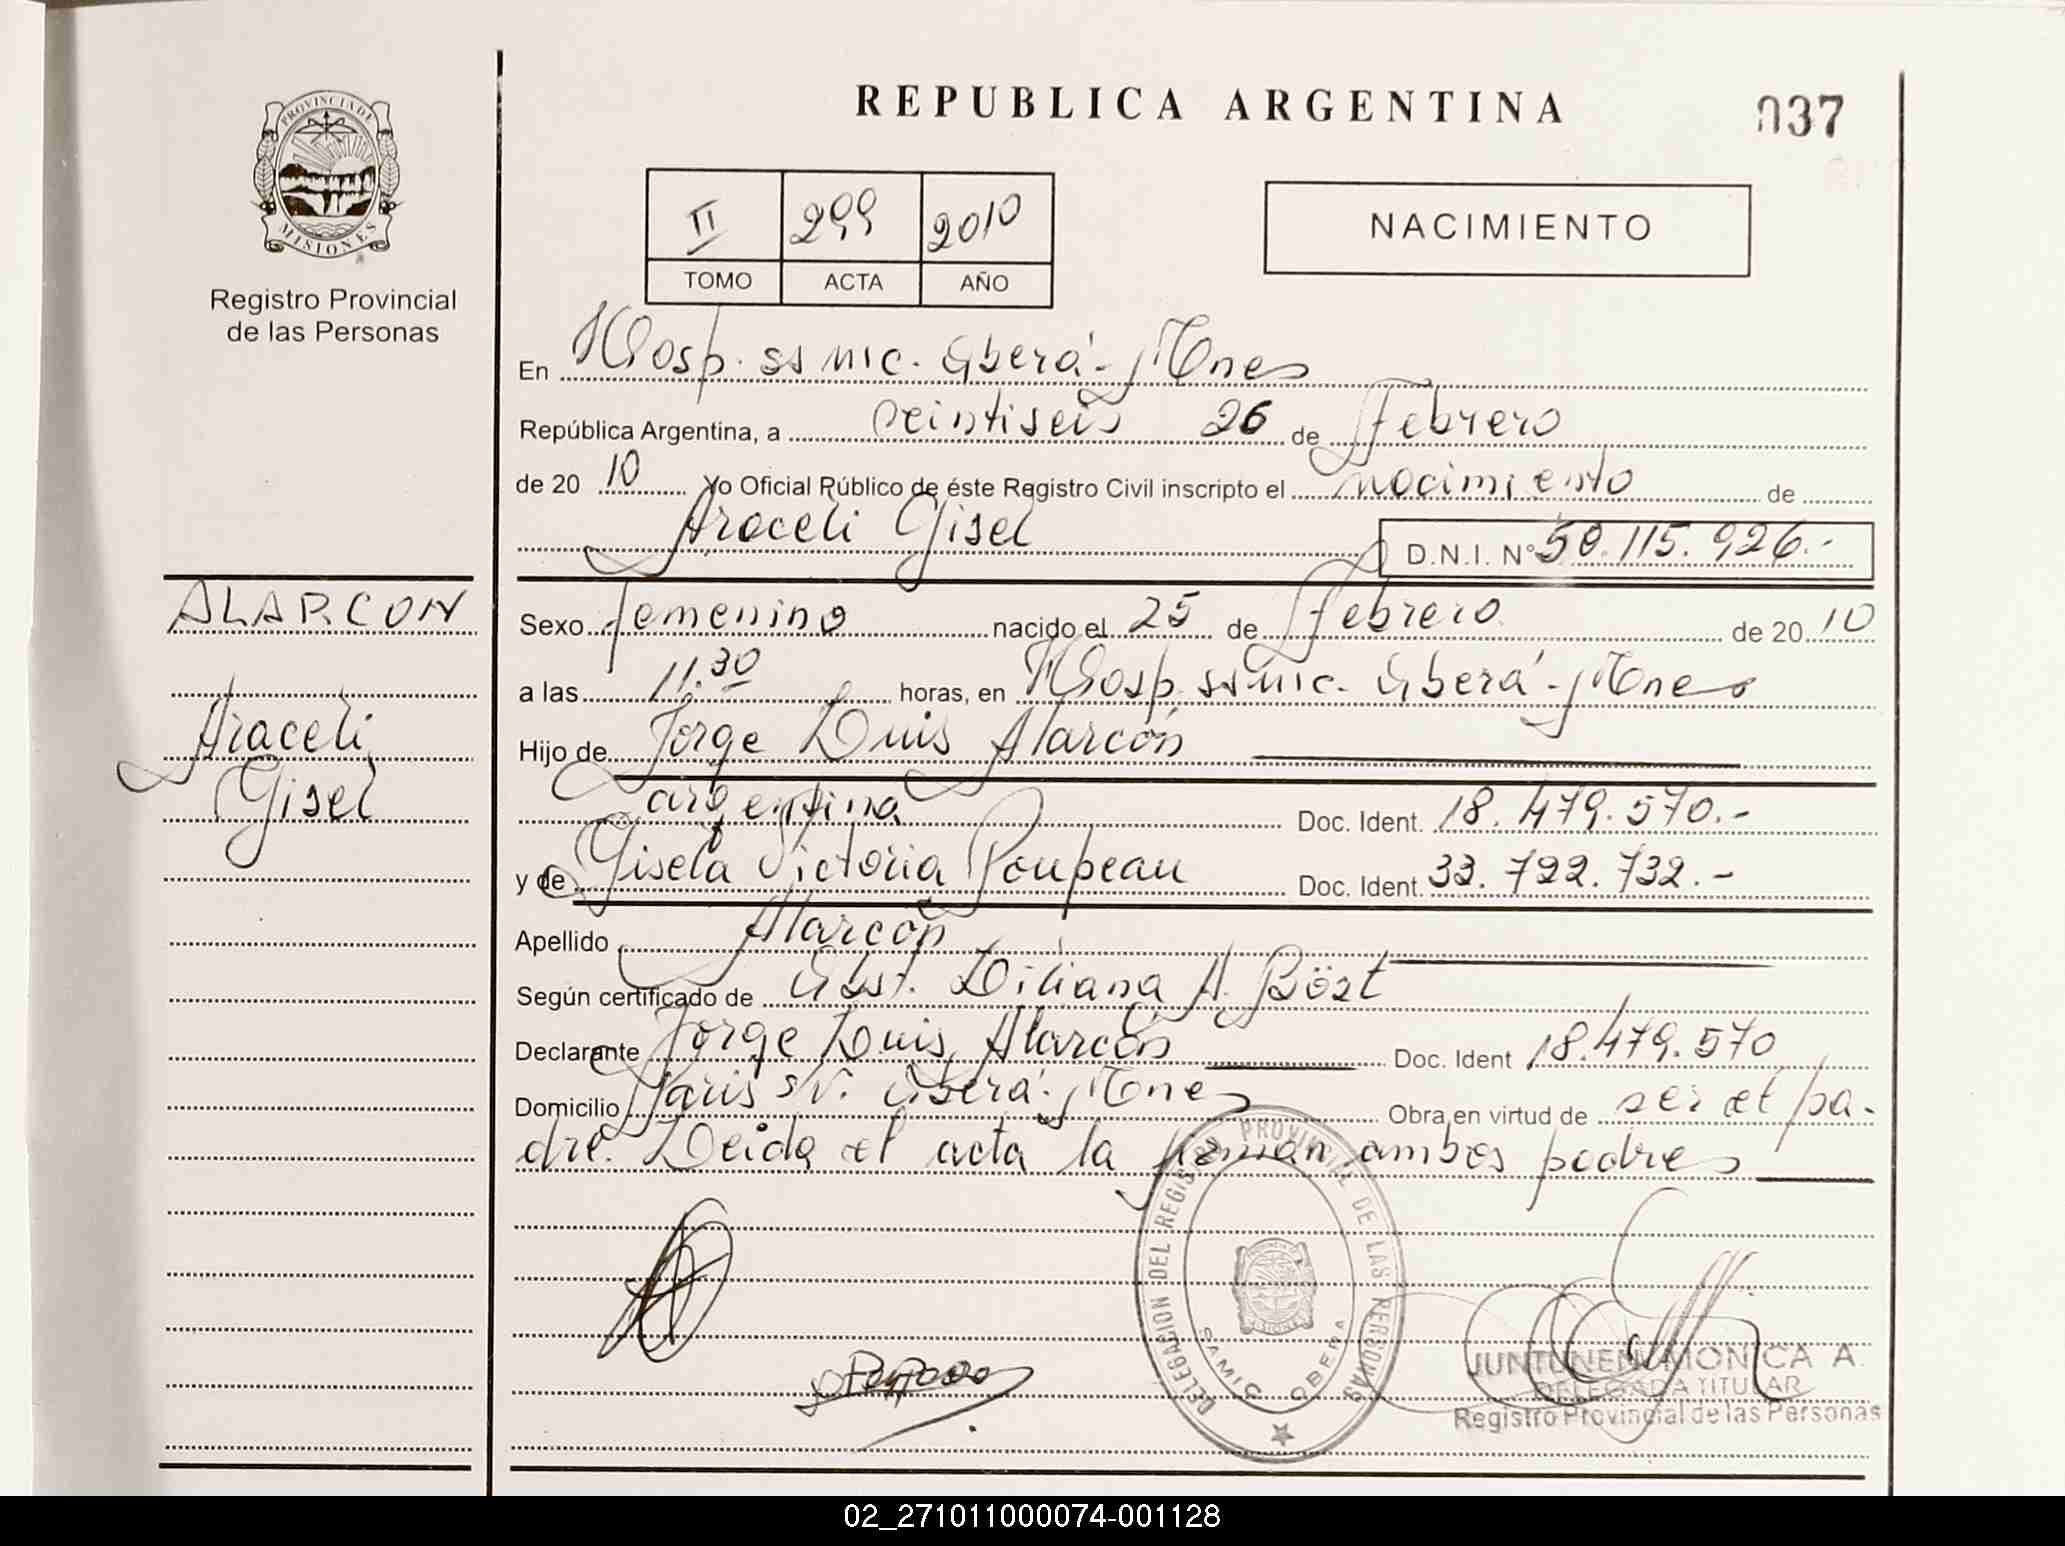 PROVINCIA DE
MISIONES
Registro Provincial
de las Personas
REPUBLICA ARGENTINA
037
II 299 2010
TOMO ACTA AÑO
NACIMIENTO
En Hosp. ss mic. Oberá - Mnes
República Argentina, a veintiseis 26 de Febrero
de 20 10 Yo Oficial Público de éste Registro Civil inscripto el nacimiento de
Araceli Gisel D.N.I. Nº 50.115.926.-
ALARCON
Araceli
Gisel
Sexo femenino nacido el 25 de febrero de 2010
a las 11.30 horas, en Hosp. ss mic. Oberá - Mnes
Hijo de Jorge Luis Alarcón
argentina Doc. Ident. 18.479.570.-
y de Gisela Victoria Poupeau Doc. Ident. 33.722.732.-
Apellido Alarcón
Según certificado de Obst. Liliana A.
Declarante Jorge Luis Alarcón Doc. Ident 18.479.570
Domicilio Paris s/n. Oberá - Mnes Obra en virtud de ser el pa-
dre. Leida el acta la firman ambos padres
DELEGACION DEL REGISTRO PROVINCIAL DE LAS PERSONAS
SAMIC OBERA
JUNTUNEN MONICA A.
DELEGADA TITULAR
Registro Provincial de las Personas
02_271011000074-001128